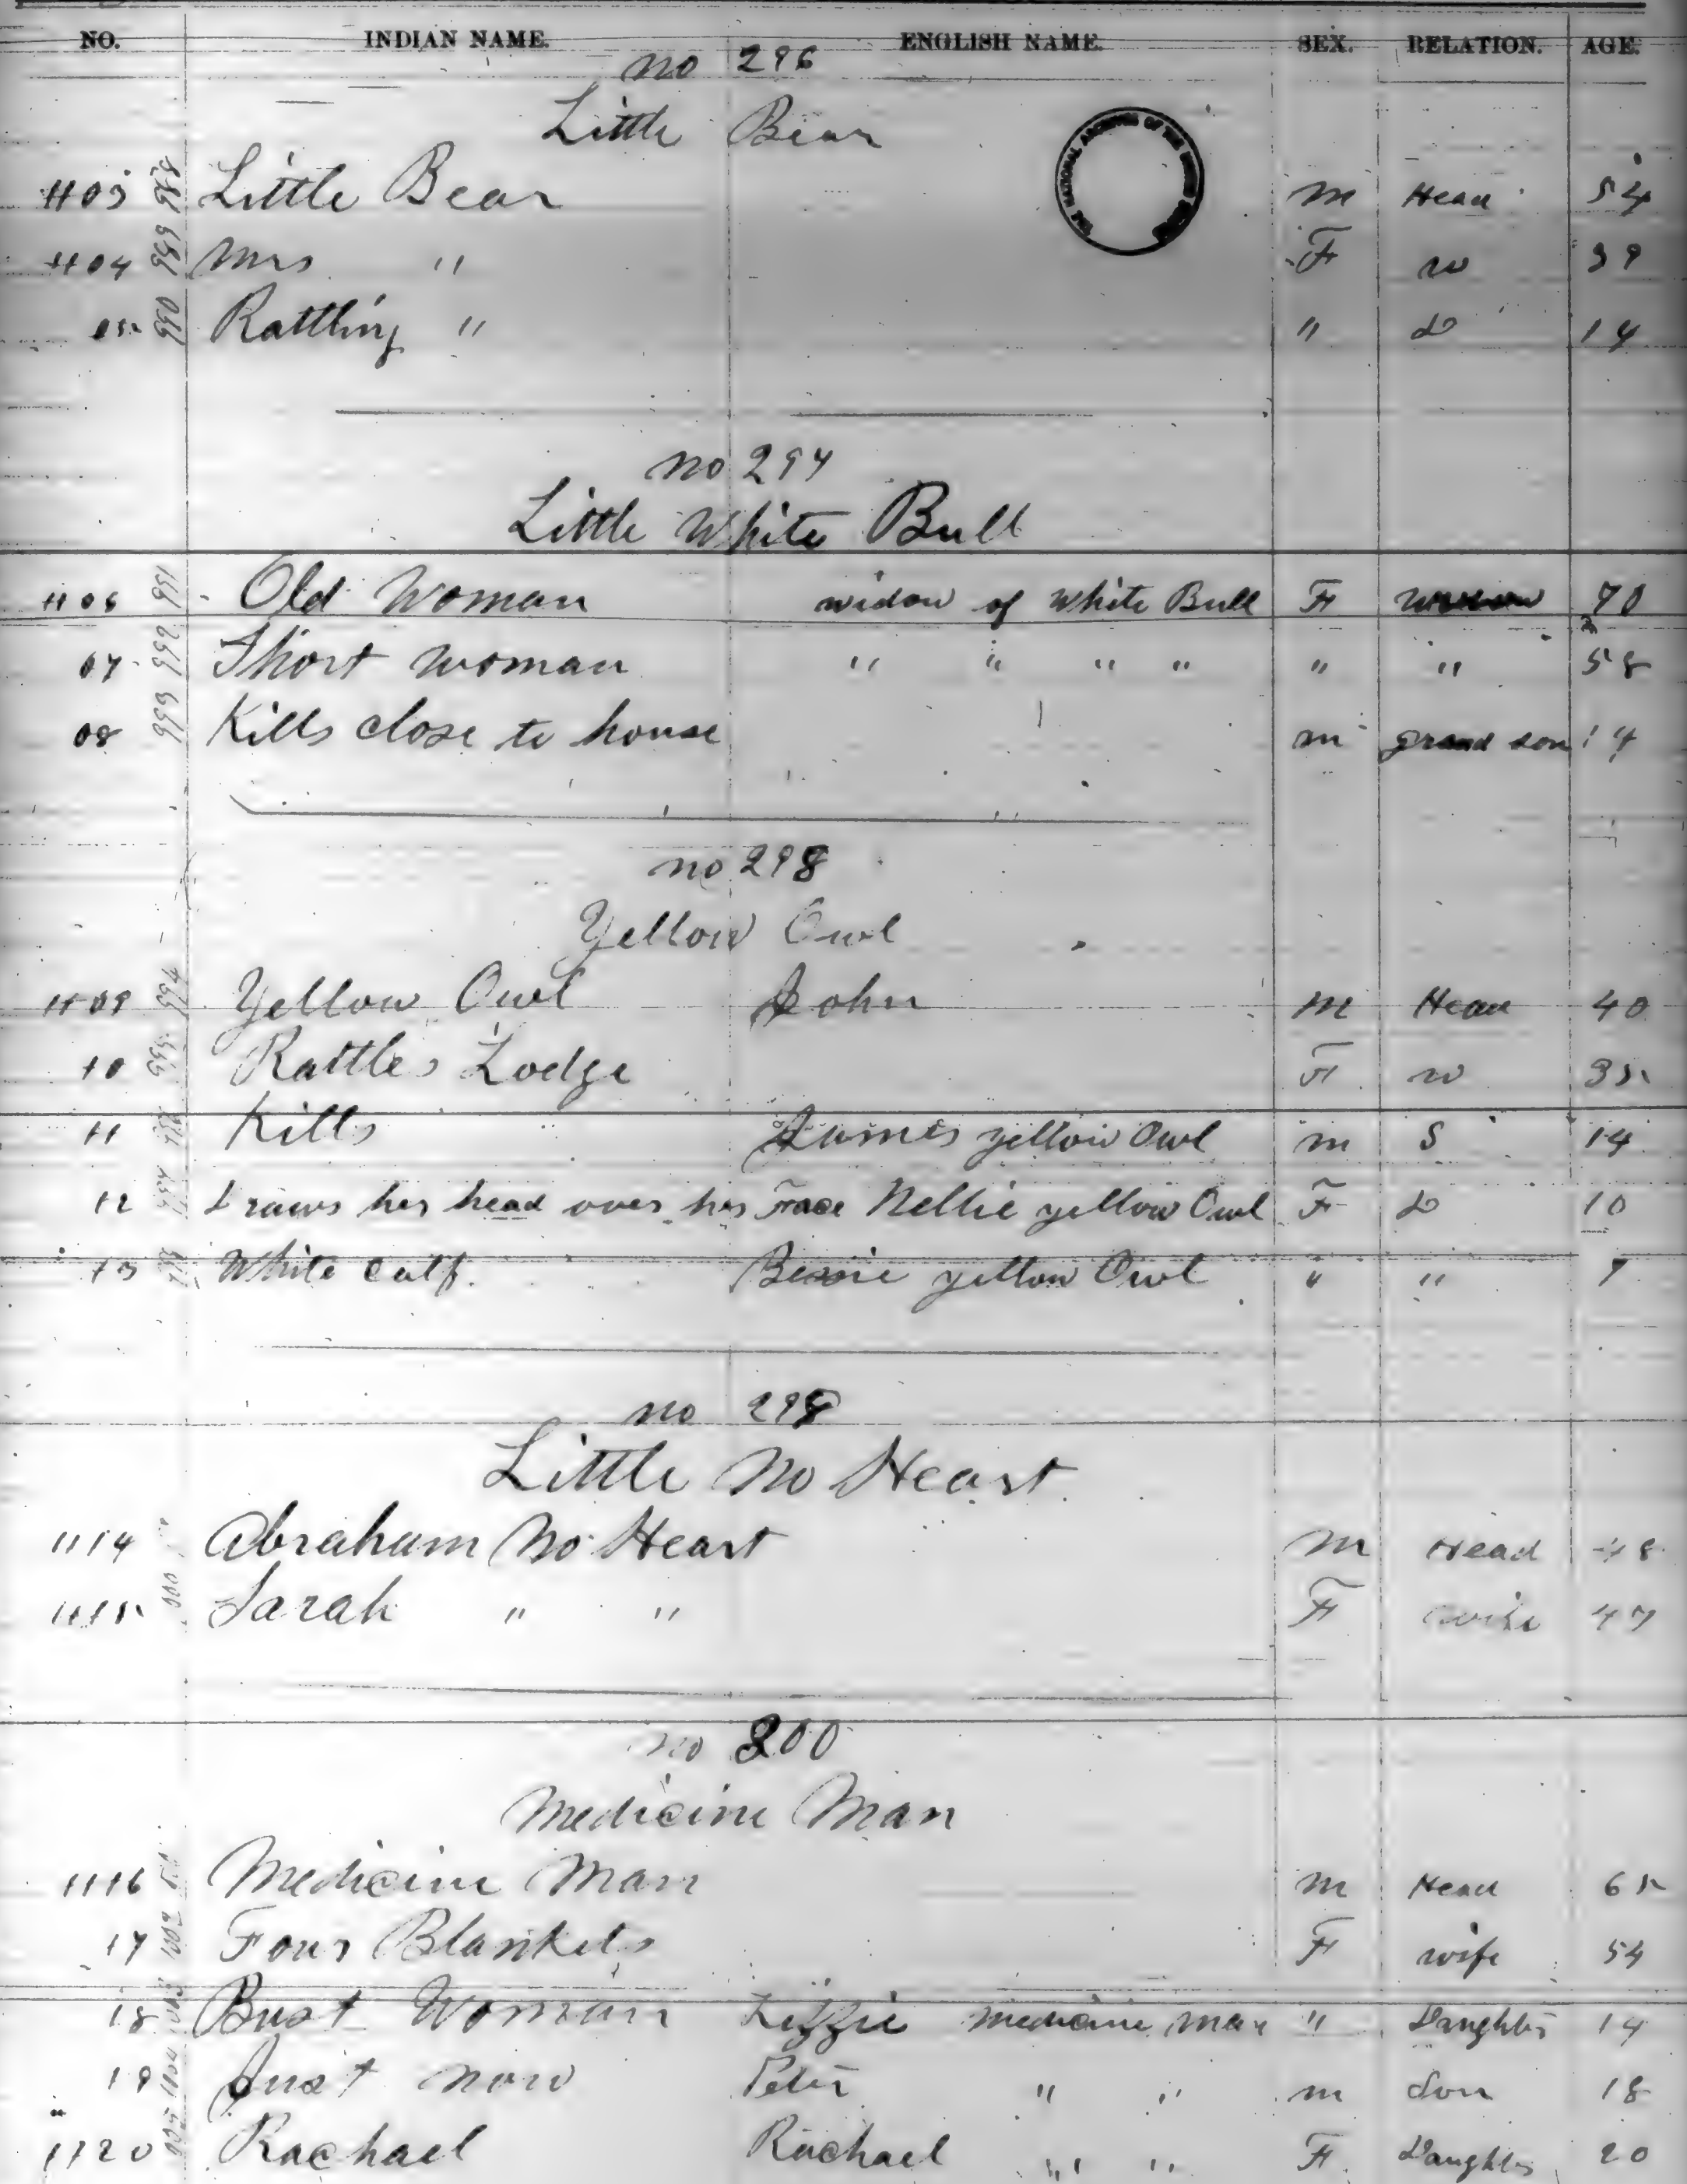 NO. INDIAN NAME. ENGLISH NAME. SEX. RELATION. AGE.
no 296
Little Bear
1103 988 Little Bear M Head 54
1104 989 Mrs " F w 39
05 990 Rattling " " D 14
no 297
Little White Bull
1106 991 Old Woman widow of White Bull F 70
07 992 Short woman " " " " " " 58
08 993 Kills close to house m grand son 14
no 298
Yellow Owl
1109 994 Yellow Owl John M Head 40
10 995 Rattles Lodge F w 35
11 Kills James yellow Owl m S 14
12 Draws her head over her Face Nellie yellow Owl F D 10
13 White Calf. Bessie yellow Owl " " 7
no
Little No Heart
1114 Abraham No Heart M Head 48
1115 Sarah " " F wife 47
no 300
Medicine Man
1116 Medicine Man M Head 65
17 1002 Four Blankets F wife 54
18 1003 Bust Woman Lizzie medicine man " Daughter 14
19 1004 Just now Peter " " m Son 18
1120 1005 Rachael Rachael " " F Daughter 20